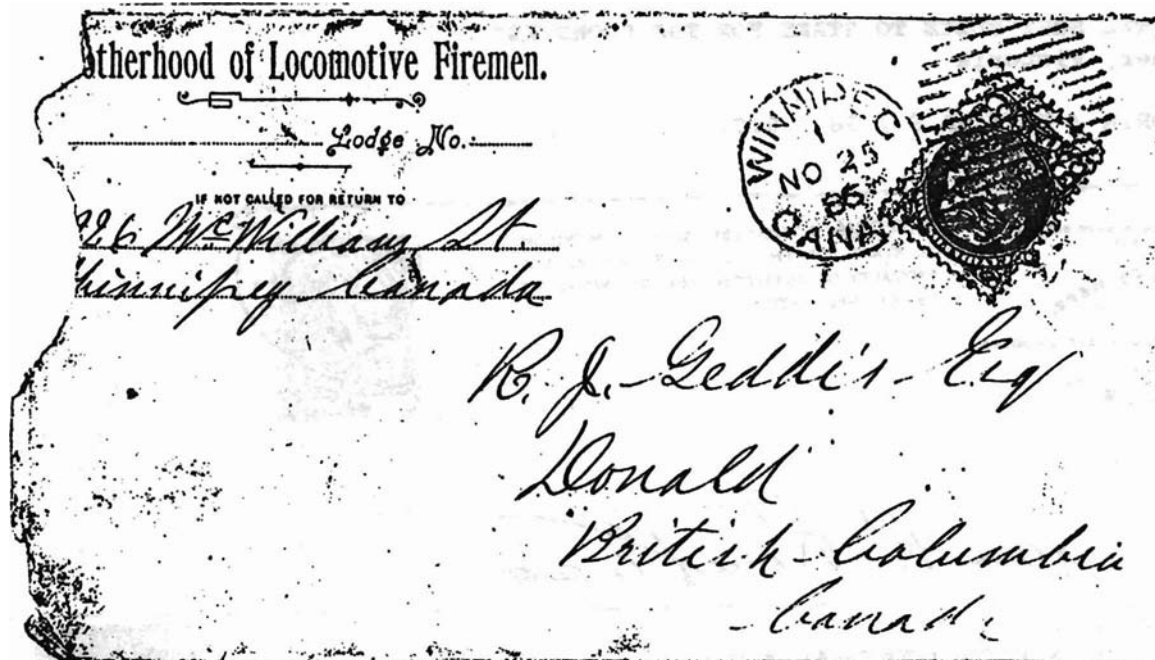 otherhood of Locomotive Firemen.
Lodge No.
IF NOT CALLED FOR RETURN TO
McWilliam St.
Winnipeg Canada
WINNIPEG
1
NO 25
86
CANADA
R. J. Geddis Esq
Donald
British Columbia
Canada